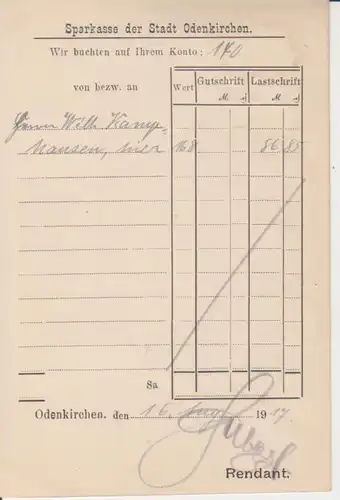 Sparkasse der Stadt Odenkirchen.
Wir buchten auf Ihrem Konto: 170
von bezw. an Wert Gutschrift Lastschrift
M. ₰ M. ₰
Herrn Wilh. Kamp-
hausen, hier 16.8 86 85
Sa
Odenkirchen, den 16. Aug. 1917.
Rendant.